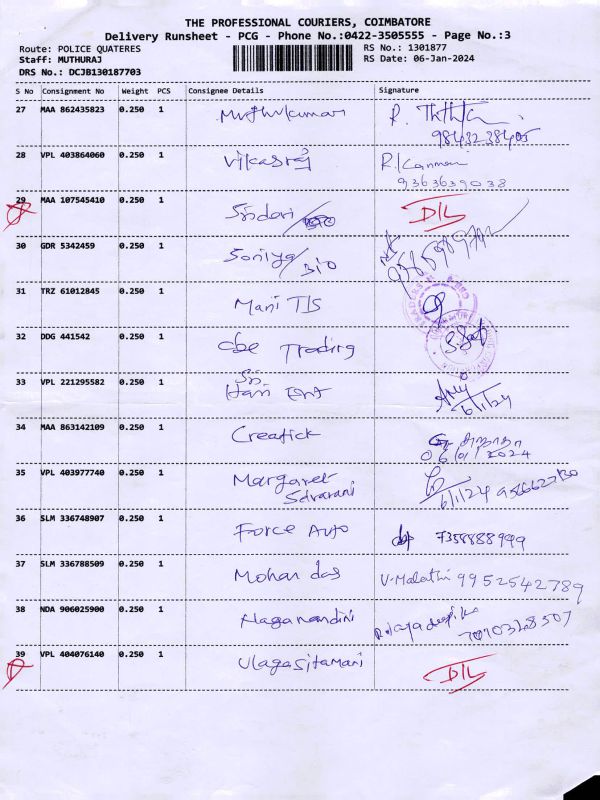 THE PROFESSIONAL COURIERS, COIMBATORE
Delivery Runsheet - PCG - Phone No.:0422-3505555 - Page No.:3
Route: POLICE QUATERES RS No.: 1301877
Staff: MUTHURAJ RS Date: 06-Jan-2024
DRS No.: DCJB130187703
S No Consignment No Weight PCS Consignee Details Signature
27 MAA 862435823 0.250 1 Muthukumar R.
9843238405
28 VPL 403864060 0.250 1 Vikasraj R. Kanmani
9363639038
29 MAA 107545410 0.250 1 Sridevi D/L
30 GDR 5342459 0.250 1 Soniya/
31 TRZ 61012845 0.250 1 Mani TIS
32 DDG 441542 0.250 1 cbe Trading
33 VPL 221295582 0.250 1 Sri
Hari Ent 6/1/24
34 MAA 863142109 0.250 1 Creatick
06/01/2024
35 VPL 403977740 0.250 1 Margaret
6/1/24
36 SLM 336748907 0.250 1 Force Auto 7358888999
37 SLM 336788509 0.250 1 Mohan das V. Malathi 9952542789
38 NDA 906025900 0.250 1 Naganandini
39 VPL 404076140 0.250 1 Ulagasitamani D/L